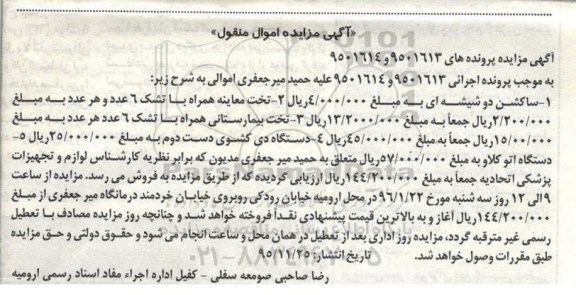 «آگهی مزایده اموال منقول»
آگهی مزایده پرونده های ۹۵۰۱۶۱۳ و ۹۵۰۱۶۱۴
به موجب پرونده اجرائی ۹۵۰۱۶۱۳ و ۹۵۰۱۶۱۴ علیه حمید میر جعفری اموالی به شرح زیر:
۱-ساکشن دو شیشه ای به مبلغ ۴/۰۰۰/۰۰۰ریال ۲-تخت معاینه همراه با تشک ۶ عدد و هر عدد به مبلغ
۲/۲۰۰/۰۰۰ریال جمعاً به مبلغ ۱۳/۲۰۰۰/۰۰۰ریال ۳-تخت بیمارستانی همراه با تشک ۶ عدد هر عدد به مبلغ
۱۵/۰۰۰ریال جمعاً به مبلغ ۴۵/۰۰۰/۰۰۰ریال ۴-دستگاه دی کشوی دست دوم به مبلغ ۲۵/۰۰۰/۰۰۰ریال ۵-
دستگاه اتو کلاو به مبلغ ۵۷/۰۰۰/۰۰۰ریال متعلق به حمید میر جعفری مدیون که برابر نظریه کارشناس لوازم و تجهیزات
پزشکی اتحادیه جمعاً به مبلغ ۱۴۴/۲۰۰/۰۰۰ریال ارزیابی گردیده که از طریق مزایده به فروش می رسد. مزایده از ساعت
۹ الی ۱۲ روز سه شنبه مورخ ۹۶/۱/۲۲ در محل ارومیه خیابان رودکی روبروی خیابان خردمند درمانگاه میر جعفری از مبلغ
۱۴۴/۲۰۰/۰۰۰ریال آغاز و به بالاترین قیمت پیشنهادی نقداً فروخته خواهد شد و چنانچه روز مزایده مصادف با تعطیل
رسمی غیر مترقبه گردد، مزایده روز اداری بعد از تعطیل در همان محل و ساعت انجام می شود و حقوق دولتی و حق مزایده
طبق مقررات وصول خواهد شد. تاریخ انتشار: ۹۵/۱۱/۲۵
رضا صاحبی صومعه سفلی - کفیل اداره اجراء مفاد اسناد رسمی ارومیه